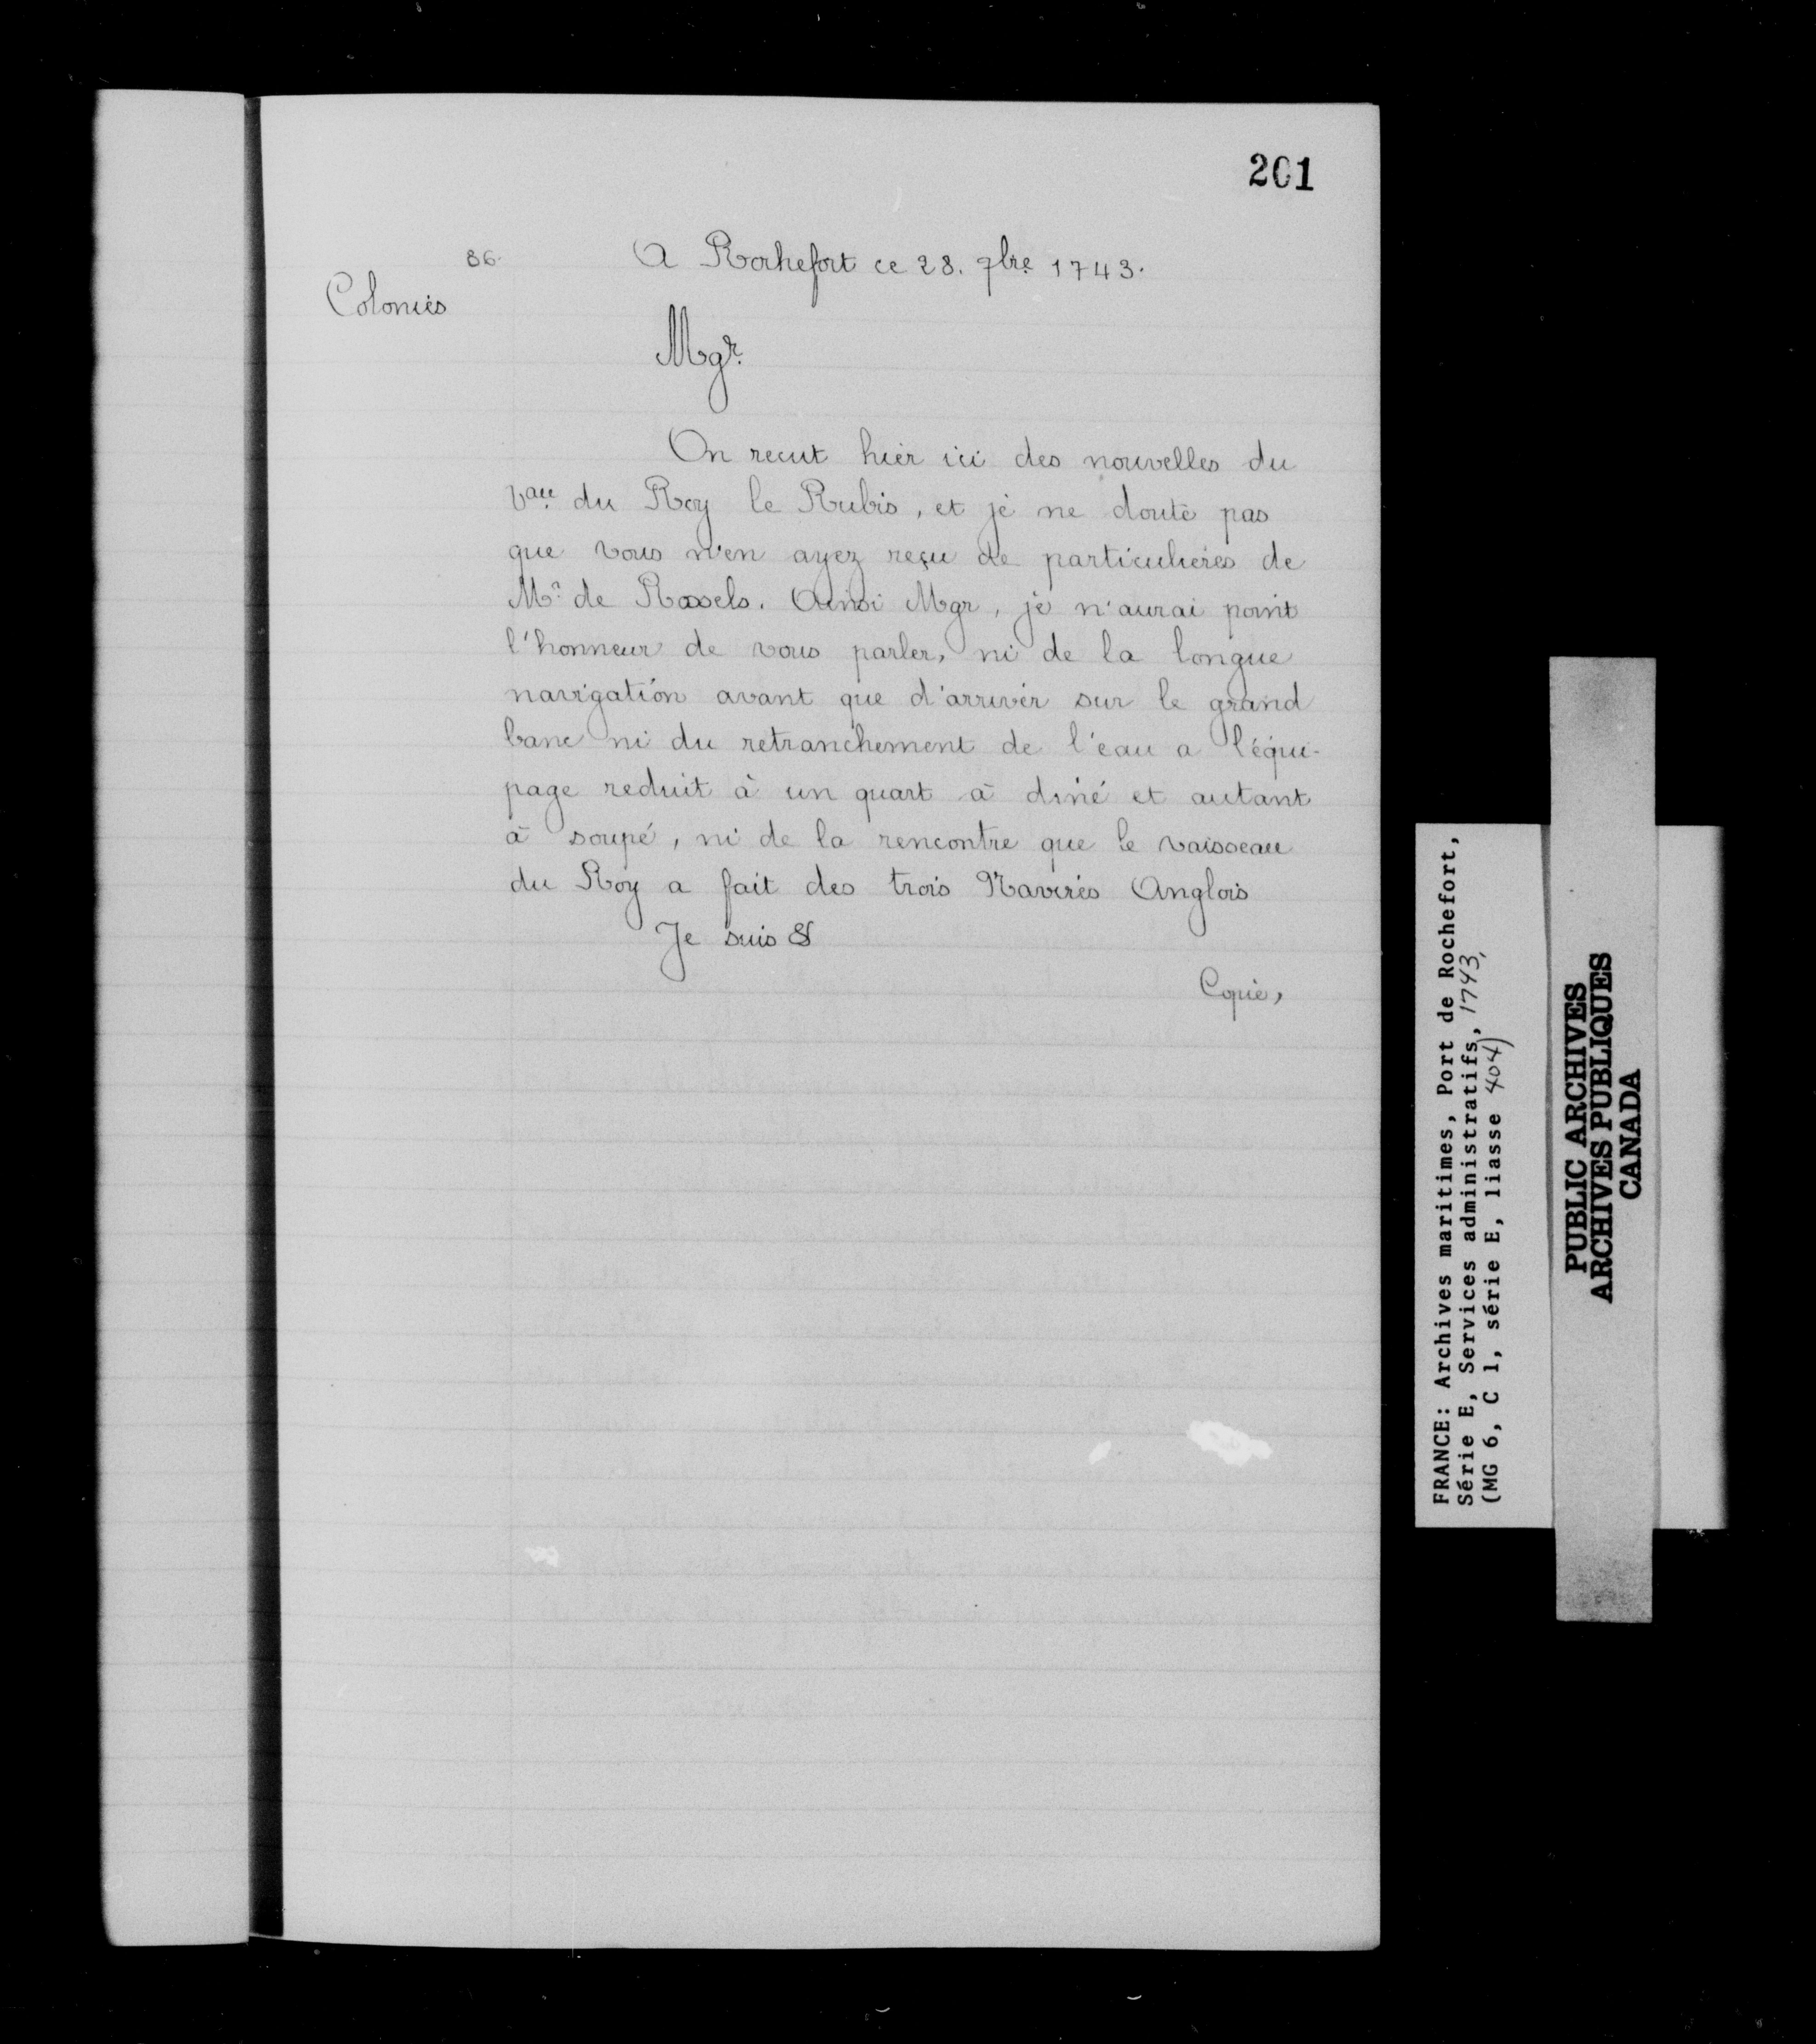 201
86.
A Rochefort ce 28. 7bre 1743.
Colonies
Mgr.
On recut hier ici des nouvelles du
vau. du Roy le Rubis, et je ne doute pas
que vous n'en ayez reçu de particulieres de
Mr. de Rossels. Ainsi Mgr, je n'aurai point
l'honneur de vous parler, ni de la longue
navigation avant que d'arriver sur le grand
banc ni du retranchement de l'eau a l'équi-
page reduit à un quart à diné et autant
à soupé, ni de la rencontre que le vaisseau
du Roy a fait des trois Navires Anglois
Je suis &
Copie,
FRANCE: Archives maritimes, Port de Rochefort,
Série E, Services administratifs, 1743,
(MG 6, C 1, série E, liasse 404)
PUBLIC ARCHIVES
ARCHIVES PUBLIQUES
CANADA